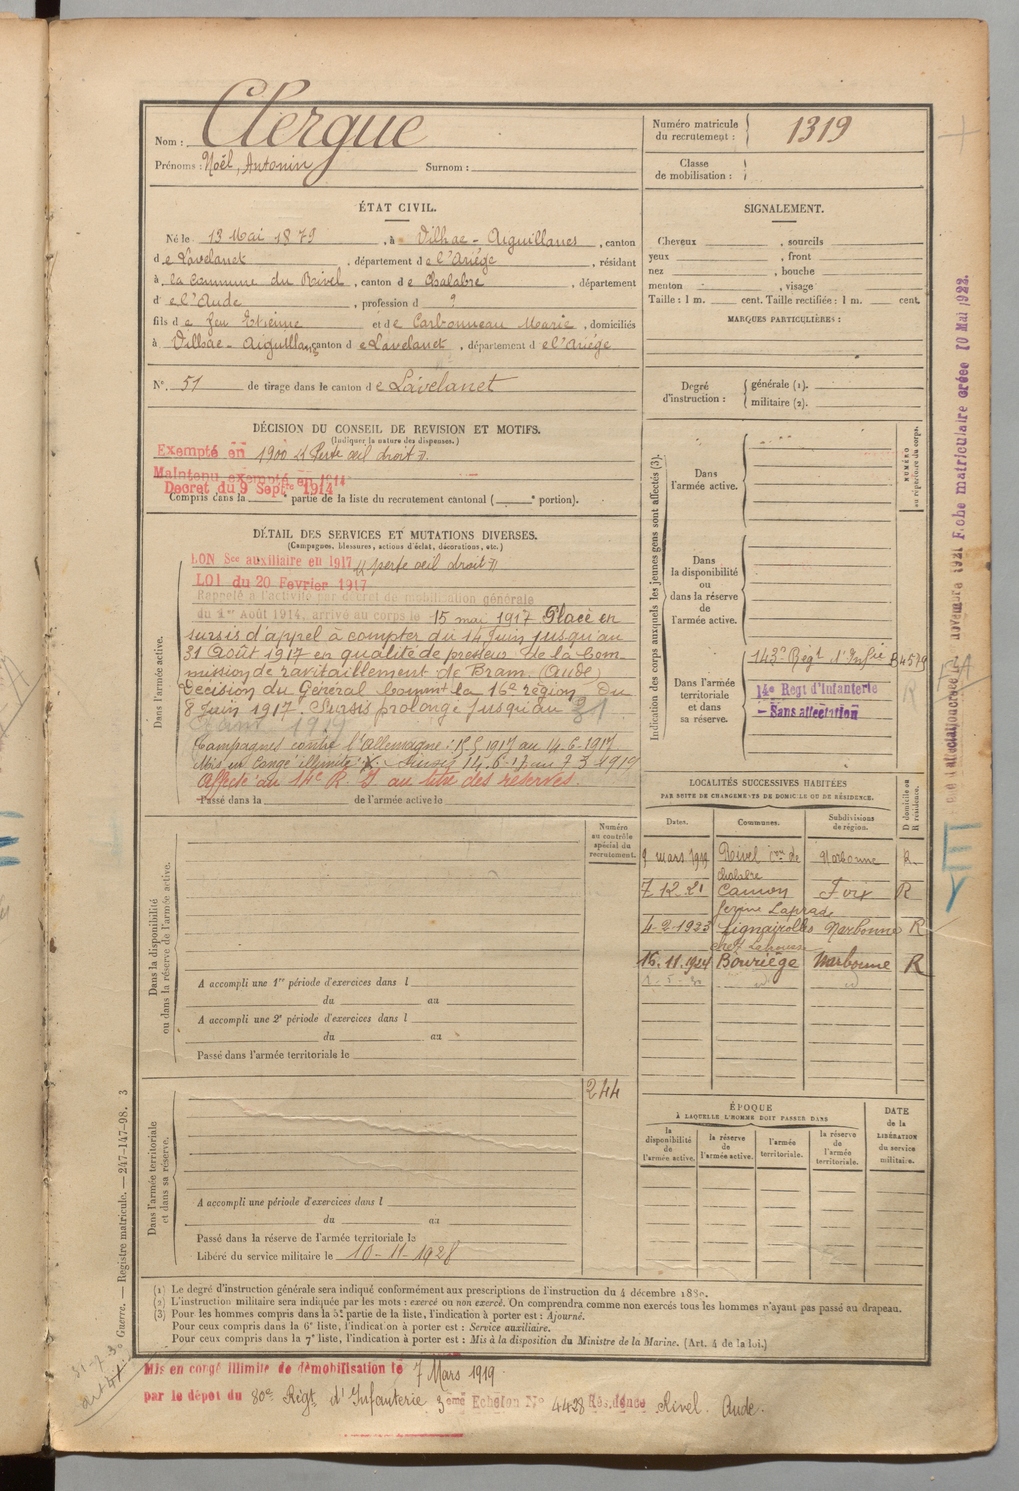 Nom : Clergue
Prénoms : Noël, Antonin Surnom :
Numéro matricule du recrutement : 1319
Classe de mobilisation :
ÉTAT CIVIL.
Né le 13 Mai 1879, à Vilhac-Aiguillanes, canton
de Lavelanet, département de l'Ariége, résidant
à la commune du Rivel, canton de Chalabre, département
d'e l'Aude, profession d ?
fils de feu Etienne et de Carbonneau Marie, domiciliés
à Vilhac-Aiguillanes, canton de Lavelanet, département de l'Ariége
N° 51 de tirage dans le canton de Lavelanet
SIGNALEMENT.
Cheveux , sourcils
yeux , front
nez , bouche
menton , visage
Taille : 1 m. cent. Taille rectifiée : 1 m. cent.
MARQUES PARTICULIÈRES :
Degré d'instruction : générale (1).
militaire (2).
DÉCISION DU CONSEIL DE REVISION ET MOTIFS.
(Indiquer la nature des dispenses.)
Exempté en 1900 « Perte œil droit ».
Maintenu exempté en 1914
Decret du 9 Septre 1914
Compris dans la e partie de la liste du recrutement cantonal ( e portion).
DÉTAIL DES SERVICES ET MUTATIONS DIVERSES.
(Campagnes, blessures, actions d'éclat, décorations, etc.)
Dans l'armée active.
LON Sce auxiliaire en 1917 « perte œil droit »
LOI du 20 Fevrier 1917
Rappelé à l'activité par décret de mobilisation générale
du 1er Août 1914, arrivé au corps le 15 mai 1917 Placé en
sursis d'appel à compter du 14 Juin jusqu'au
31 Août 1917 en qualité de presseur de la Com-
mission de ravitaillement de Bram. (Aude)
Décision du Général Commnt la 16e région du
8 Juin 1917. Sursis prolongé jusqu'au 31
1919
Campagnes contre l'Allemagne : 15 5 1917 au 14-6-1917.
Mis en congé illimité Sursis 14-6-17 au 7 3 1919
Affecté au 14e R. I au titre des réserves.
Passé dans la de l'armée active le
Indication des corps auxquels les jeunes gens sont affectés (3).
NUMÉRO au répertoire du corps.
Dans l'armée active.
Dans la disponibilité ou dans la réserve de l'armée active.
Dans l'armée territoriale et dans sa réserve.
143e Régt d'Infrie B4579
14e Regt d'Infanterie
- Sans affectation
LOCALITÉS SUCCESSIVES HABITÉES
PAR SUITE DE CHANGEMENTS DE DOMICILE OU DE RÉSIDENCE.
Dates. Communes. Subdivisions de région. D domicile ou R résidence.
9 mars 1919 Rivel con de Chalabre Narbonne R
7 12 21 Camon ferme Laprade Foix R
4-2-1923 Lignairolles Narbonne R
16.11.1924 Bouriége Narbonne R
Numéro au contrôle spécial du recrutement.
Dans la disponibilité ou dans la réserve de l'armée active.
A accompli une 1re période d'exercices dans l
du au
A accompli une 2e période d'exercices dans l
du au
Passé dans l'armée territoriale le
244
Dans l'armée territoriale et dans sa réserve.
A accompli une période d'exercices dans l
du au
Passé dans la réserve de l'armée territoriale le
Libéré du service militaire le 10-11-1928
ÉPOQUE
À LAQUELLE L'HOMME DOIT PASSER DANS
la disponibilité de l'armée active.
la réserve de l'armée active.
l'armée territoriale.
la réserve de l'armée territoriale.
DATE de la LIBÉRATION du service militaire.
(1) Le degré d'instruction générale sera indiqué conformément aux prescriptions de l'instruction du 4 décembre 1889.
(2) L'instruction militaire sera indiquée par les mots : exercé ou non exercé. On comprendra comme non exercés tous les hommes n'ayant pas passé au drapeau.
(3) Pour les hommes compris dans la 5e partie de la liste, l'indication à porter est : Ajourné.
Pour ceux compris dans la 6e liste, l'indication à porter est : Service auxiliaire.
Pour ceux compris dans la 7e liste, l'indication à porter est : Mis à la disposition du Ministre de la Marine. (Art. 4 de la loi.)
Guerre. — Registre matricule. — 247-147-98. 3
31-7-30
art 41
Mis en congé illimité de démobilisation le 7 Mars 1919
par le dépot du 80e Régt d'Infanterie 3eme Echelon N° 4428 Résidence Rivel. Aude.
novembre 1921 Fiche matriculaire créée 10 Mai 1922.